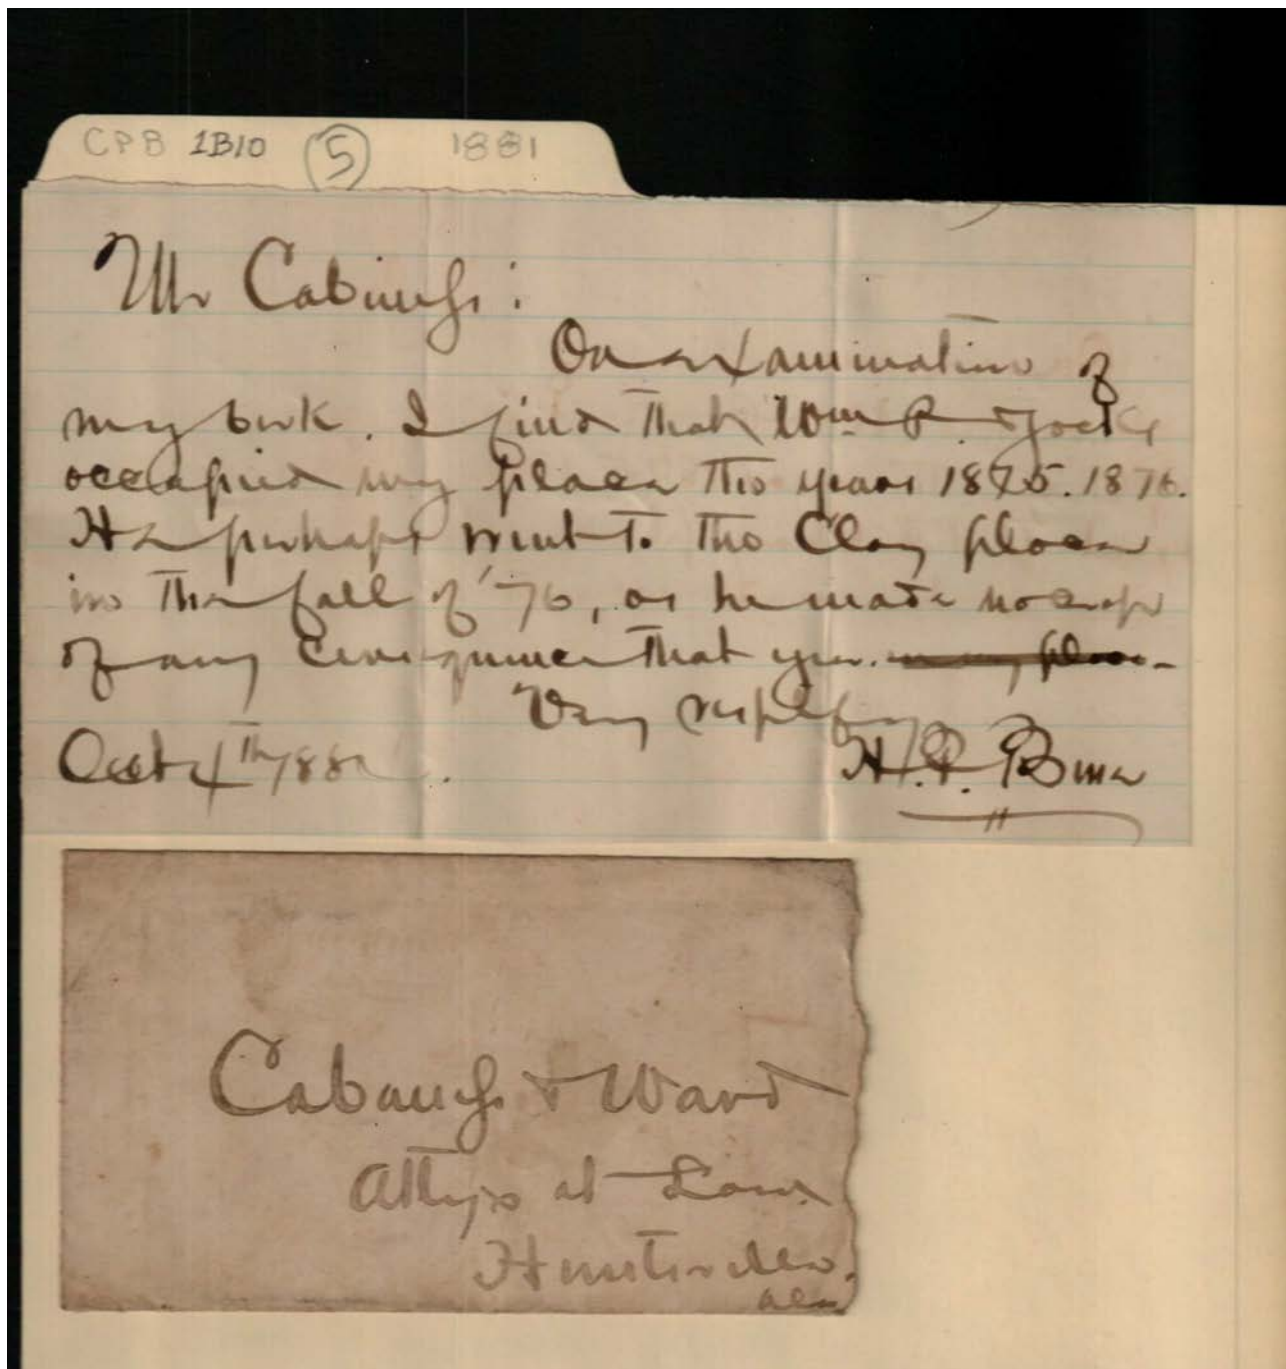 CPB 1B10 5 1881
Mr Cabiness:
On examination of
my book. I find that Wm P.
occupied my place the years 1875. 1876.
He perhaps went to the Clay place
in the fall of '76, as he made no crop
of any consequence that year. in my place
Very respectfully
Oct 4th 188
H. P.
Cabaness & Ward
Attys at Law
Huntsville.
Ala.